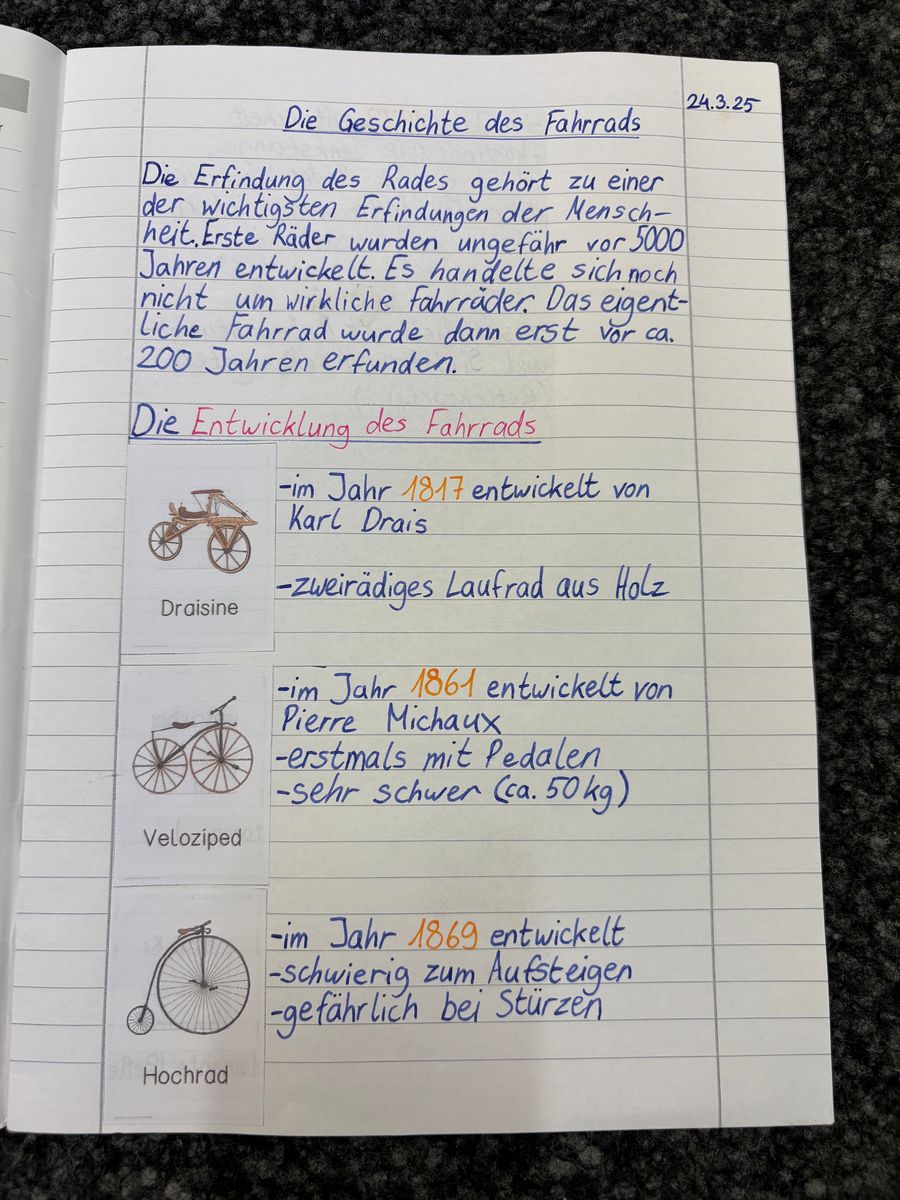 24.3.25
Die Geschichte des Fahrrads
Die Erfindung des Rades gehört zu einer
der wichtigsten Erfindungen der Mensch-
heit. Erste Räder wurden ungefähr vor 5000
Jahren entwickelt. Es handelte sich noch
nicht um wirkliche Fahrräder. Das eigent-
liche Fahrrad wurde dann erst vor ca.
200 Jahren erfunden.
Die Entwicklung des Fahrrads
-im Jahr 1817 entwickelt von
Karl Drais
-zweirädiges Laufrad aus Holz
Draisine
-im Jahr 1861 entwickelt von
Pierre Michaux
-erstmals mit Pedalen
-sehr schwer (ca. 50 kg)
Veloziped
-im Jahr 1869 entwickelt
-schwierig zum Aufsteigen
-gefährlich bei Stürzen
Hochrad